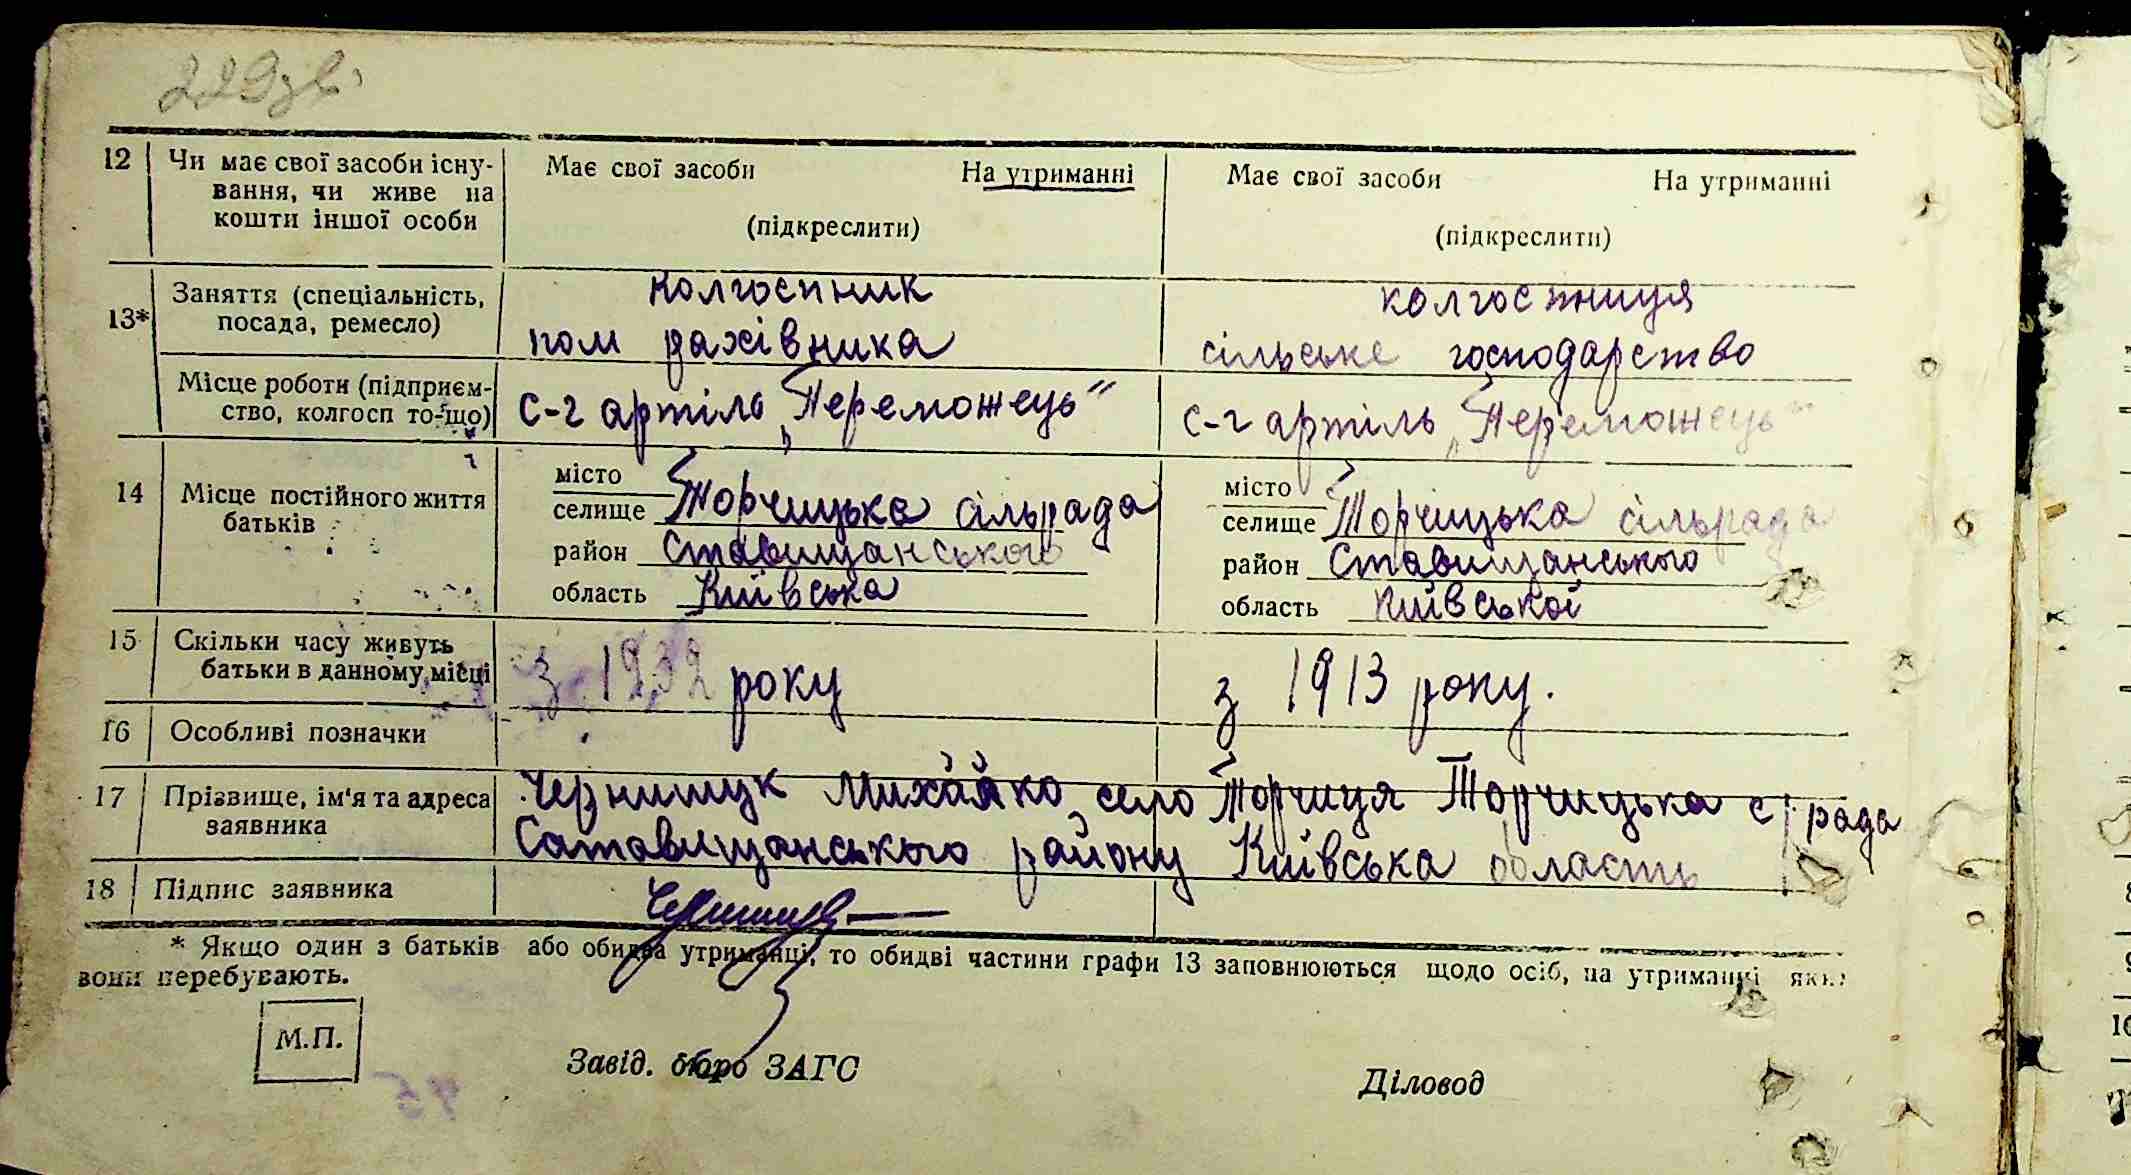 229зв.
12 Чи має свої засоби існу- Має свої засоби На утриманні Має свої засоби На утриманні
вання, чи живе на
кошти іншої особи (підкреслити) (підкреслити)
колгоспник колгоспниця
13* Заняття (спеціальність,
посада, ремесло) пом рахівника сільське господарство
Місце роботи (підприєм-
ство, колгосп то-що) с-г артіль „Переможець" с-г артіль „Переможець"
14 Місце постійного життя
батьків
місто місто
селище Торчицька сільрада селище Торчицька сільрада
район Ставищанського район Ставищанського
область Київська область Київської
15 Скільки часу живуть
батьки в данному місці з 1932 року з 1913 року.
16 Особливі позначки
17 Прізвище, ім'я та адреса Чернишук село Торчиця Торчицька с рада
заявника Сатавищанського району Київська область
18 Підпис заявника
* Якщо один з батьків або обидва утриманці, то обидві частини графи 13 заповнюються щодо осіб, на утриманні яких
вони перебувають.
М.П.
Завід. бюро ЗАГС Діловод